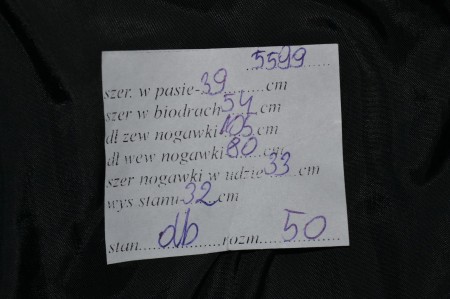 5599
szer. w pasie-39cm
szer w biodrach54cm
dł zew nogawki105cm
dł wew nogawki80cm
szer nogawki w udzie33cm
wys stanu32cm
stan....db....rozm....50